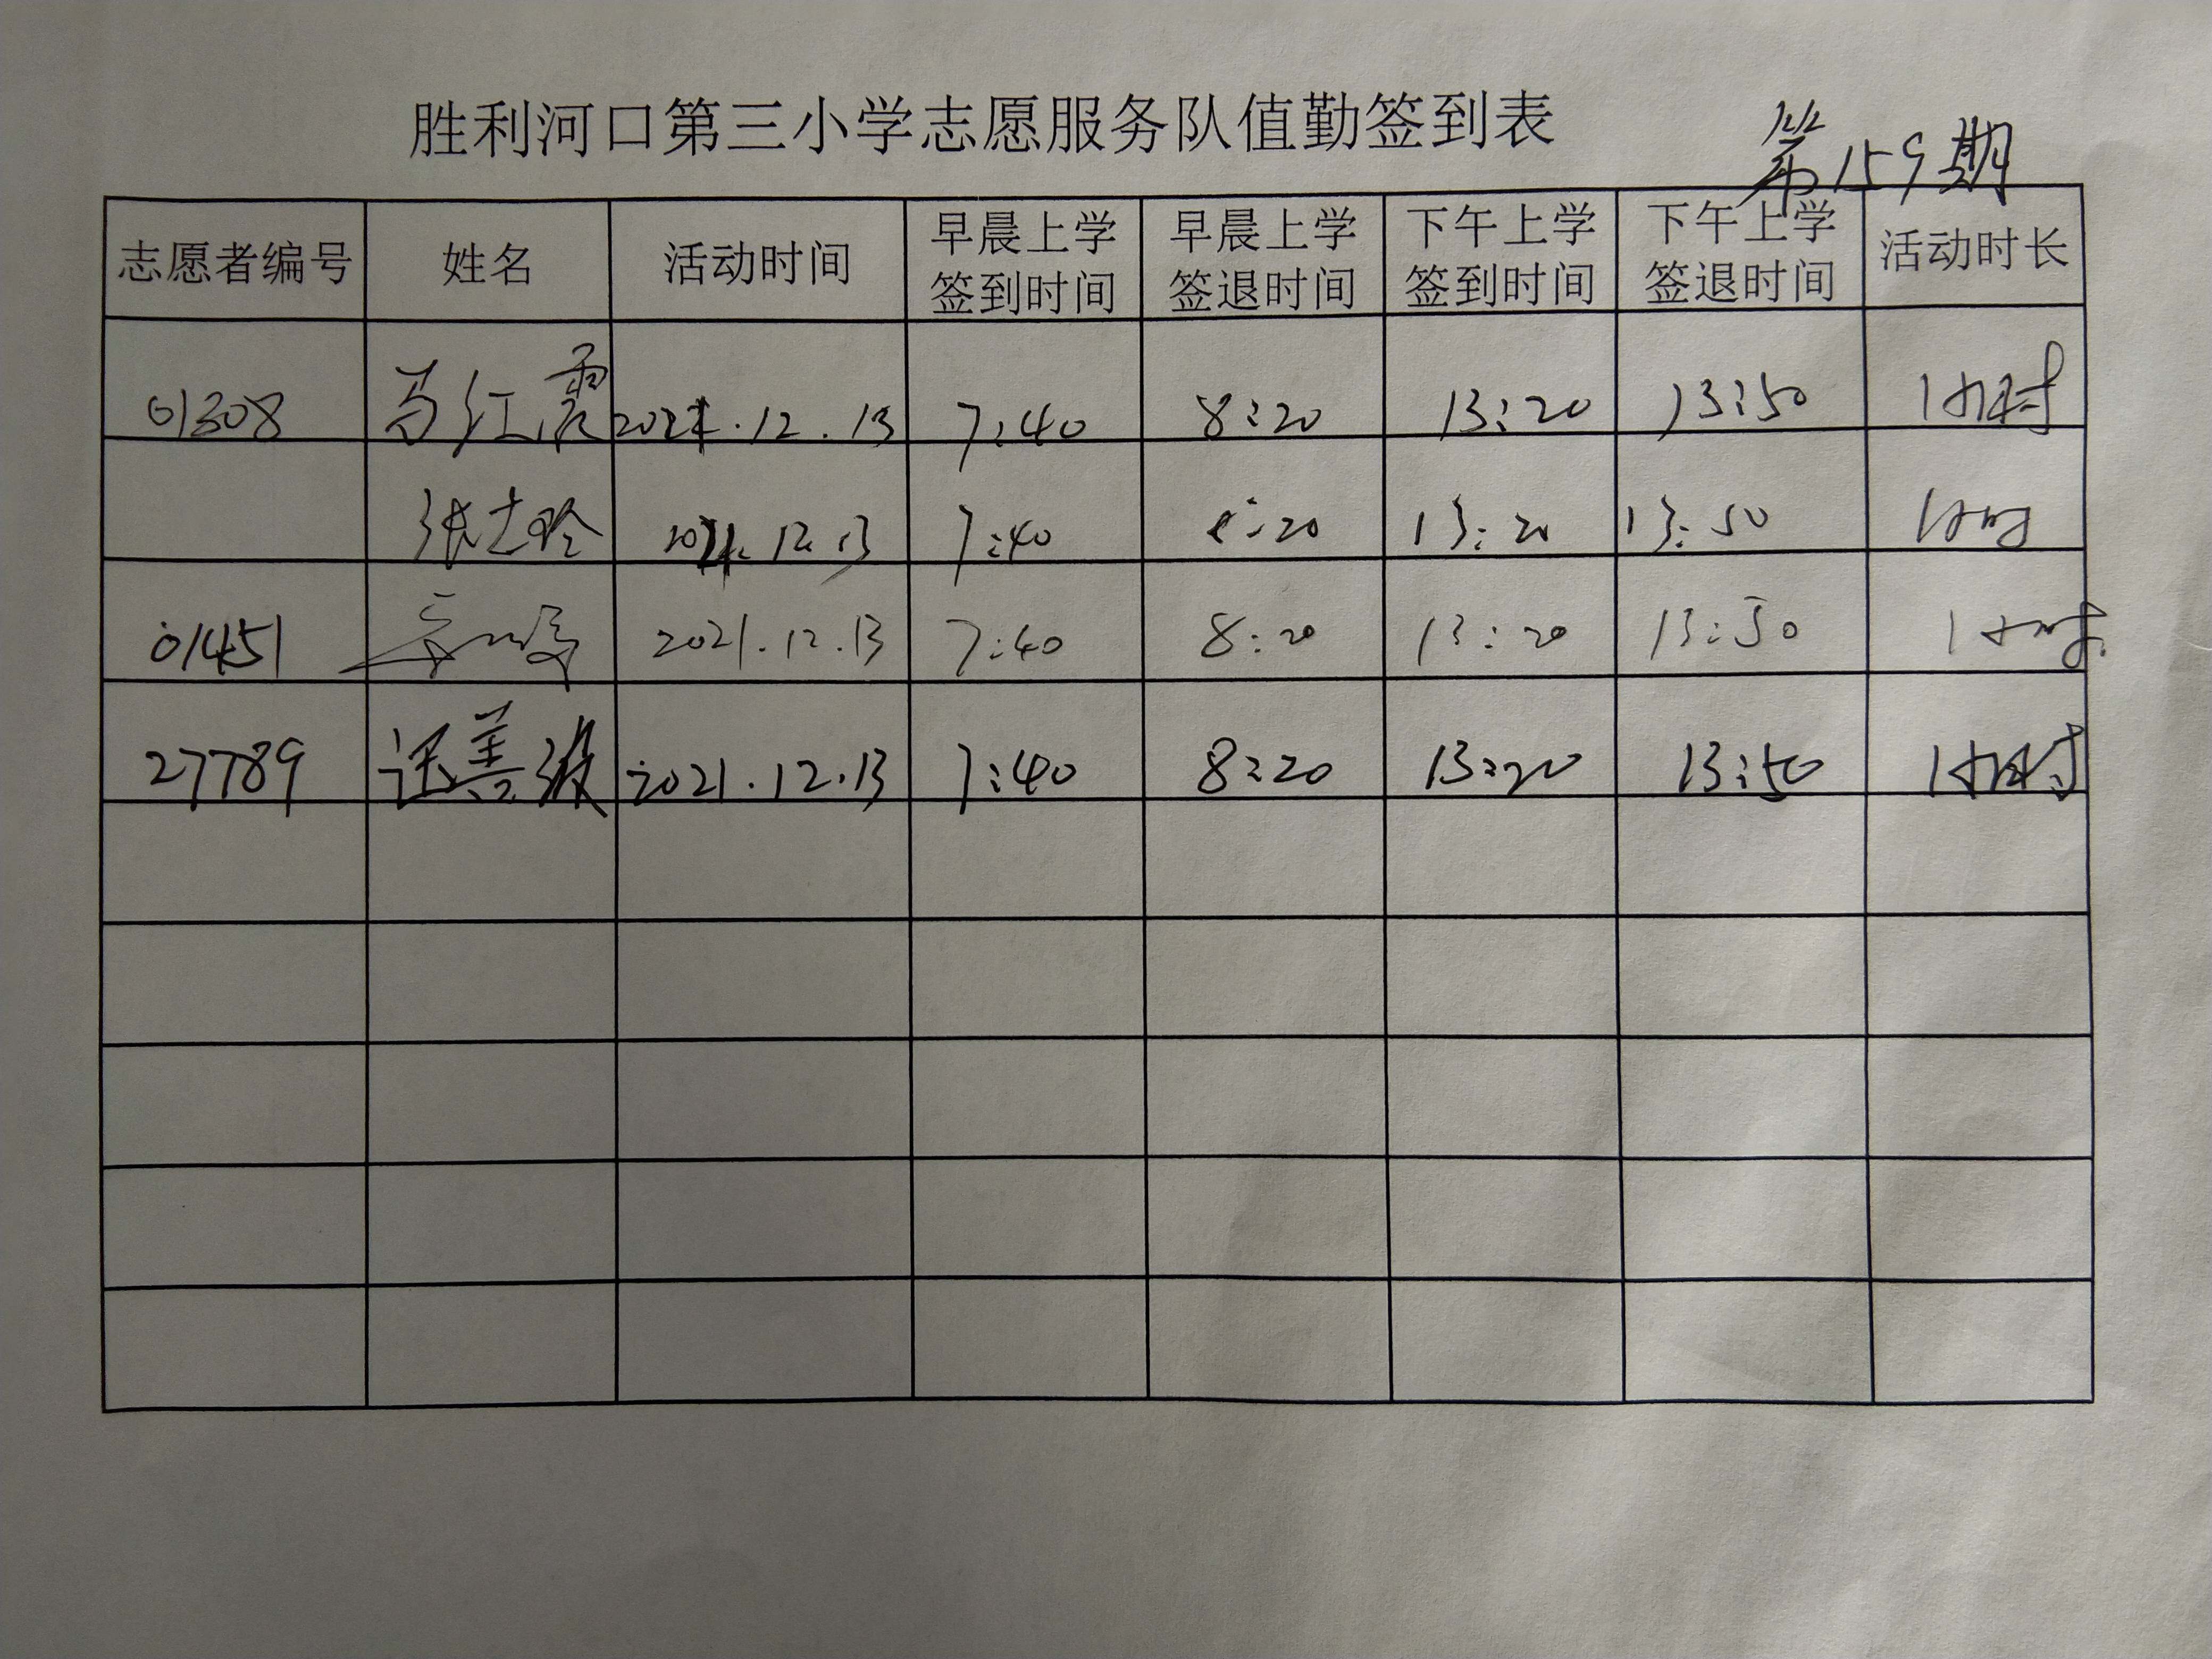 胜利河口第三小学志愿服务队值勤签到表
第159期
志愿者编号 姓名 活动时间 早晨上学签到时间 早晨上学签退时间 下午上学签到时间 下午上学签退时间 活动时长
01308 马红霞 2021.12.13 7:40 8:20 13:20 13:50 1小时
张 2021.12.13 7:40 8:20 13:20 13:50 1小时
01451 2021.12.13 7:40 8:20 13:20 13:50 1小时
27789 善波 2021.12.13 7:40 8:20 13:20 13:50 1小时